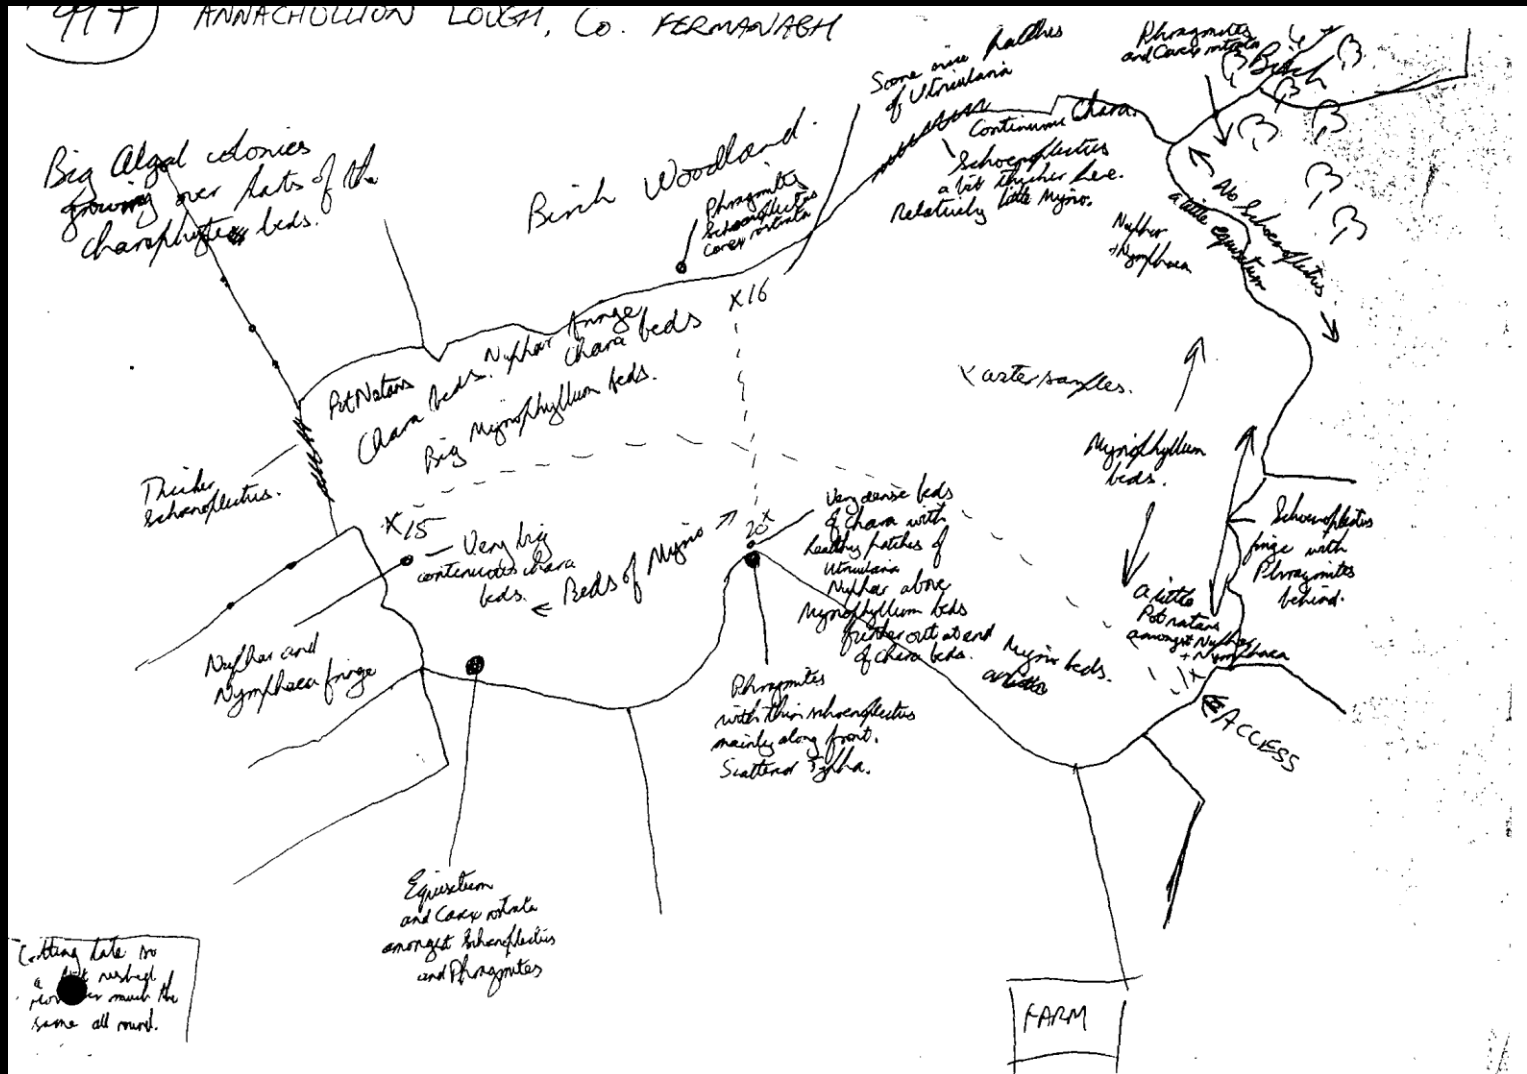 ANNACHULLION LOUGH, Co. FERMANAGH
Big Algal colonies
growing over parts of the
charophyte beds.
Birch Woodland.
Some nice patches
of Utricularia
Phragmites
and Carex rostrata
Birch
Continuous Chara.
Schoenoplectus
a bit thicker here.
Relatively little Myrio.
Phragmites
Schoenoplectus
Carex rostrata
No Schoenoplectus
a little equisetum
Nuphar
+Nymphaea
X16
Pot Natans
Chara beds.
Nuphar fringe
Chara beds
Big Myriophyllum beds.
water samples.
Thicker
Schoenoplectus.
X15
Very big
continuous chara
beds.
Beds of Myrio
20x
Very dense beds
of Chara with
healthy patches of
Utricularia
Nuphar above
Myriophyllum beds
further out at end
of chara beds.
Myriophyllum
beds.
Schoenoplectus
fringe with
Phragmites
behind.
a little
Pot natans
amongst Nuphar
+ Nymphaea
Myrio beds.
1x
ACCESS
Nuphar and
Nymphaea fringe
Phragmites
with thin schoenoplectus
mainly along front.
Scattered Typha.
Equisetum
and Carex rostrata
amongst Schoenoplectus
and Phragmites
Getting late so
a bit rushed
much the
same all round.
FARM